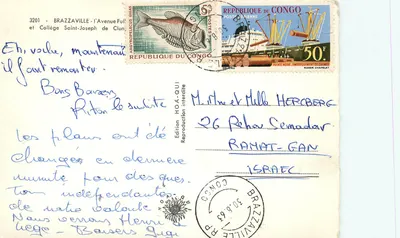 3201 - BRAZZAVILLE - l'Avenue
et Collège Saint-Joseph de
5F
REPUBLIQUE DU CONGO
REPUBLIQUE DU CONGO
50F
Eh, voilà, maintenant
il faut remonter.
Bons Baisers
Edition HOA-QUI
Reproduction interdite
Les plans ont été
changés en dernière
minute pour des ques-
tion indépendantes
de notre volonté
Nous verrons Henri
Liège - Baisers Gigi
M. Mme et Melle HERCBERG
26 Rehov Semadar
RAMAT-GAN
ISRAEL
BRAZZAVILLE R.P.
CONGO